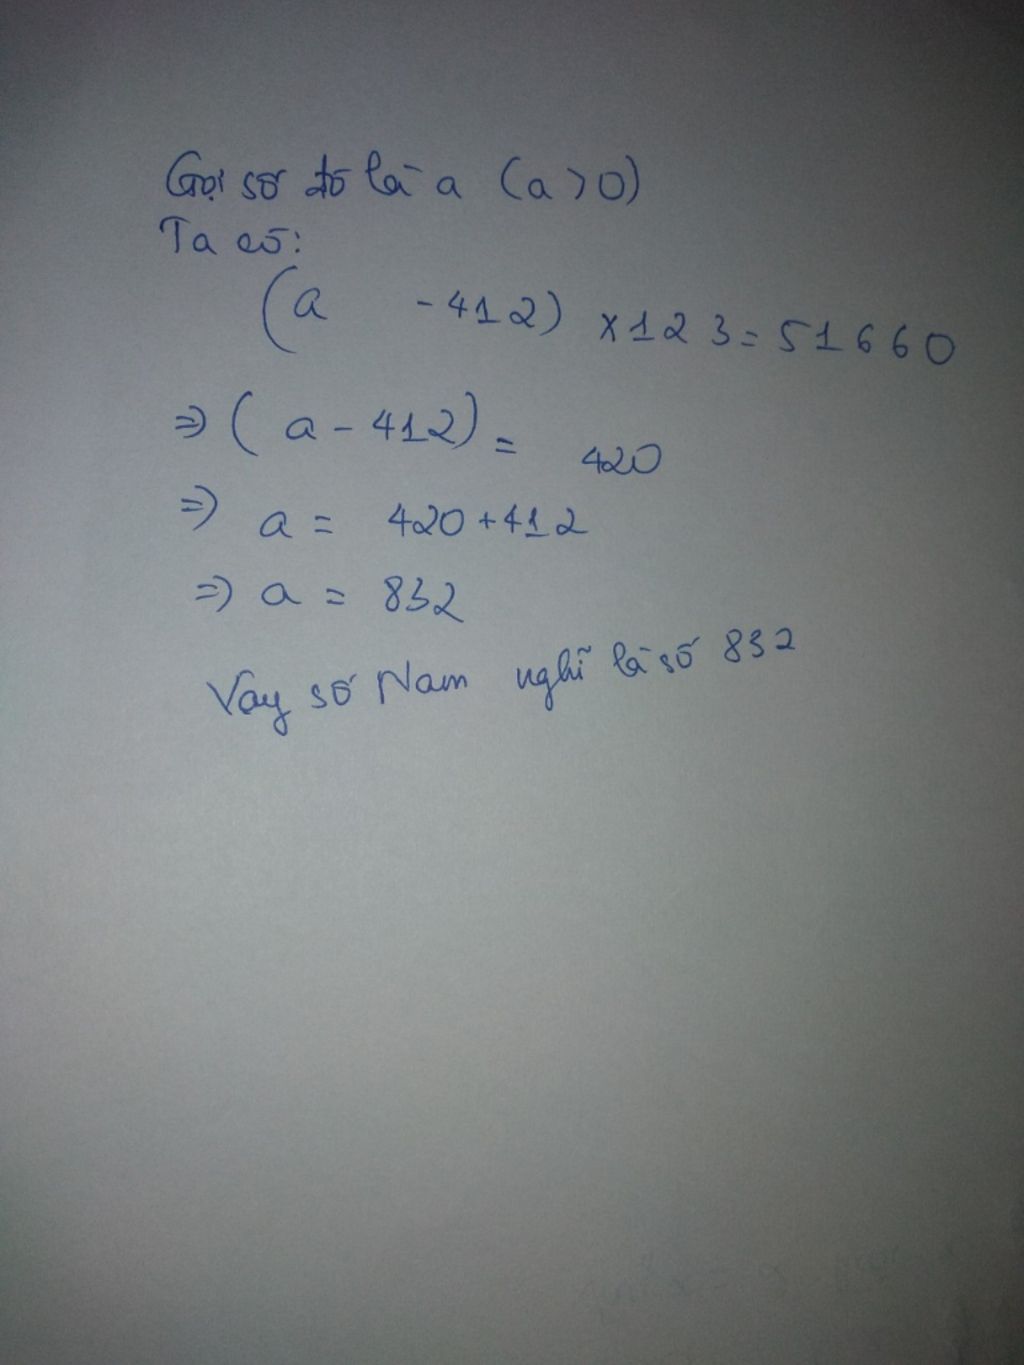 Gọi số đó là a (a > 0)
Ta có:
(a - 412) x 123 = 51660
⇒ (a - 412) = 420
⇒ a = 420 + 412
⇒ a = 832
Vay số Nam nghĩ là số 832